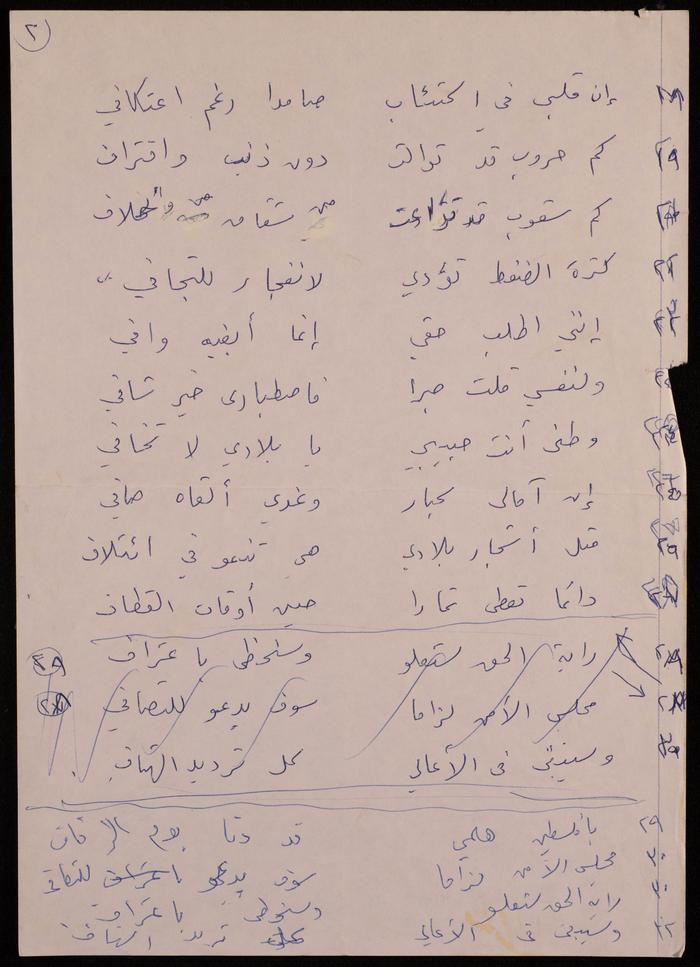 ٢
إن قلبي في اكتئاب صامدا رغم اعتكافي
كم حروب قد توالت دون ذنب واقتراف
كم شعوب قد تداعت من شقاق وخلاف
كثرة الضغط تؤدي لانفجار للتجافي
إنني اطلب حقي إنما أبغيه وافي
ولنفسي قلت صبرا فاصطباري خير شافي
وطني أنت حبيبي يا بلادي لا تخافي
إن آمالي كبار وغدي ألقاه صافي
مثل أشجار بلادي هي تنمو في ائتلاف
دائما تعطي ثمارا حين أوقات القطاف
راية الحق ستعلو وستحظى باعتراف
مجلس الأمن لزاما سوف يدعو للتصافي
وسيبقى في الأعالي كل ترديد الهتاف
٢٩ يا فلسطين هلمي قد دنا يوم الزفاف
٣٠ مجلس الأمن لزاما سوف يدعو للتصافي
راية الحق ستعلو وستحظى باعتراف
٣٢ وسيبقى في الأعالي ترديد الهتاف